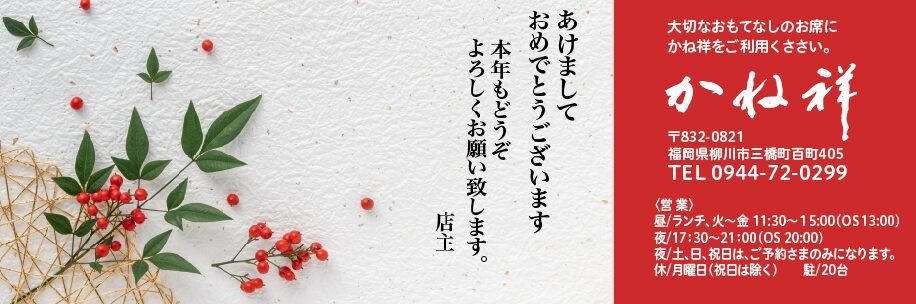 あけまして
おめでとうございます
本年もどうぞ
よろしくお願い致します。
店主
大切なおもてなしのお席に
かね祥をご利用ください。
かね祥
〒832-0821
福岡県柳川市三橋町百町405
TEL 0944-72-0299
〈営 業〉
昼/ランチ、火〜金 11:30〜15:00(OS13:00)
夜/17:30〜21:00(OS 20:00)
夜/土、日、祝日は、ご予約さまのみになります。
休/月曜日(祝日は除く) 駐/20台